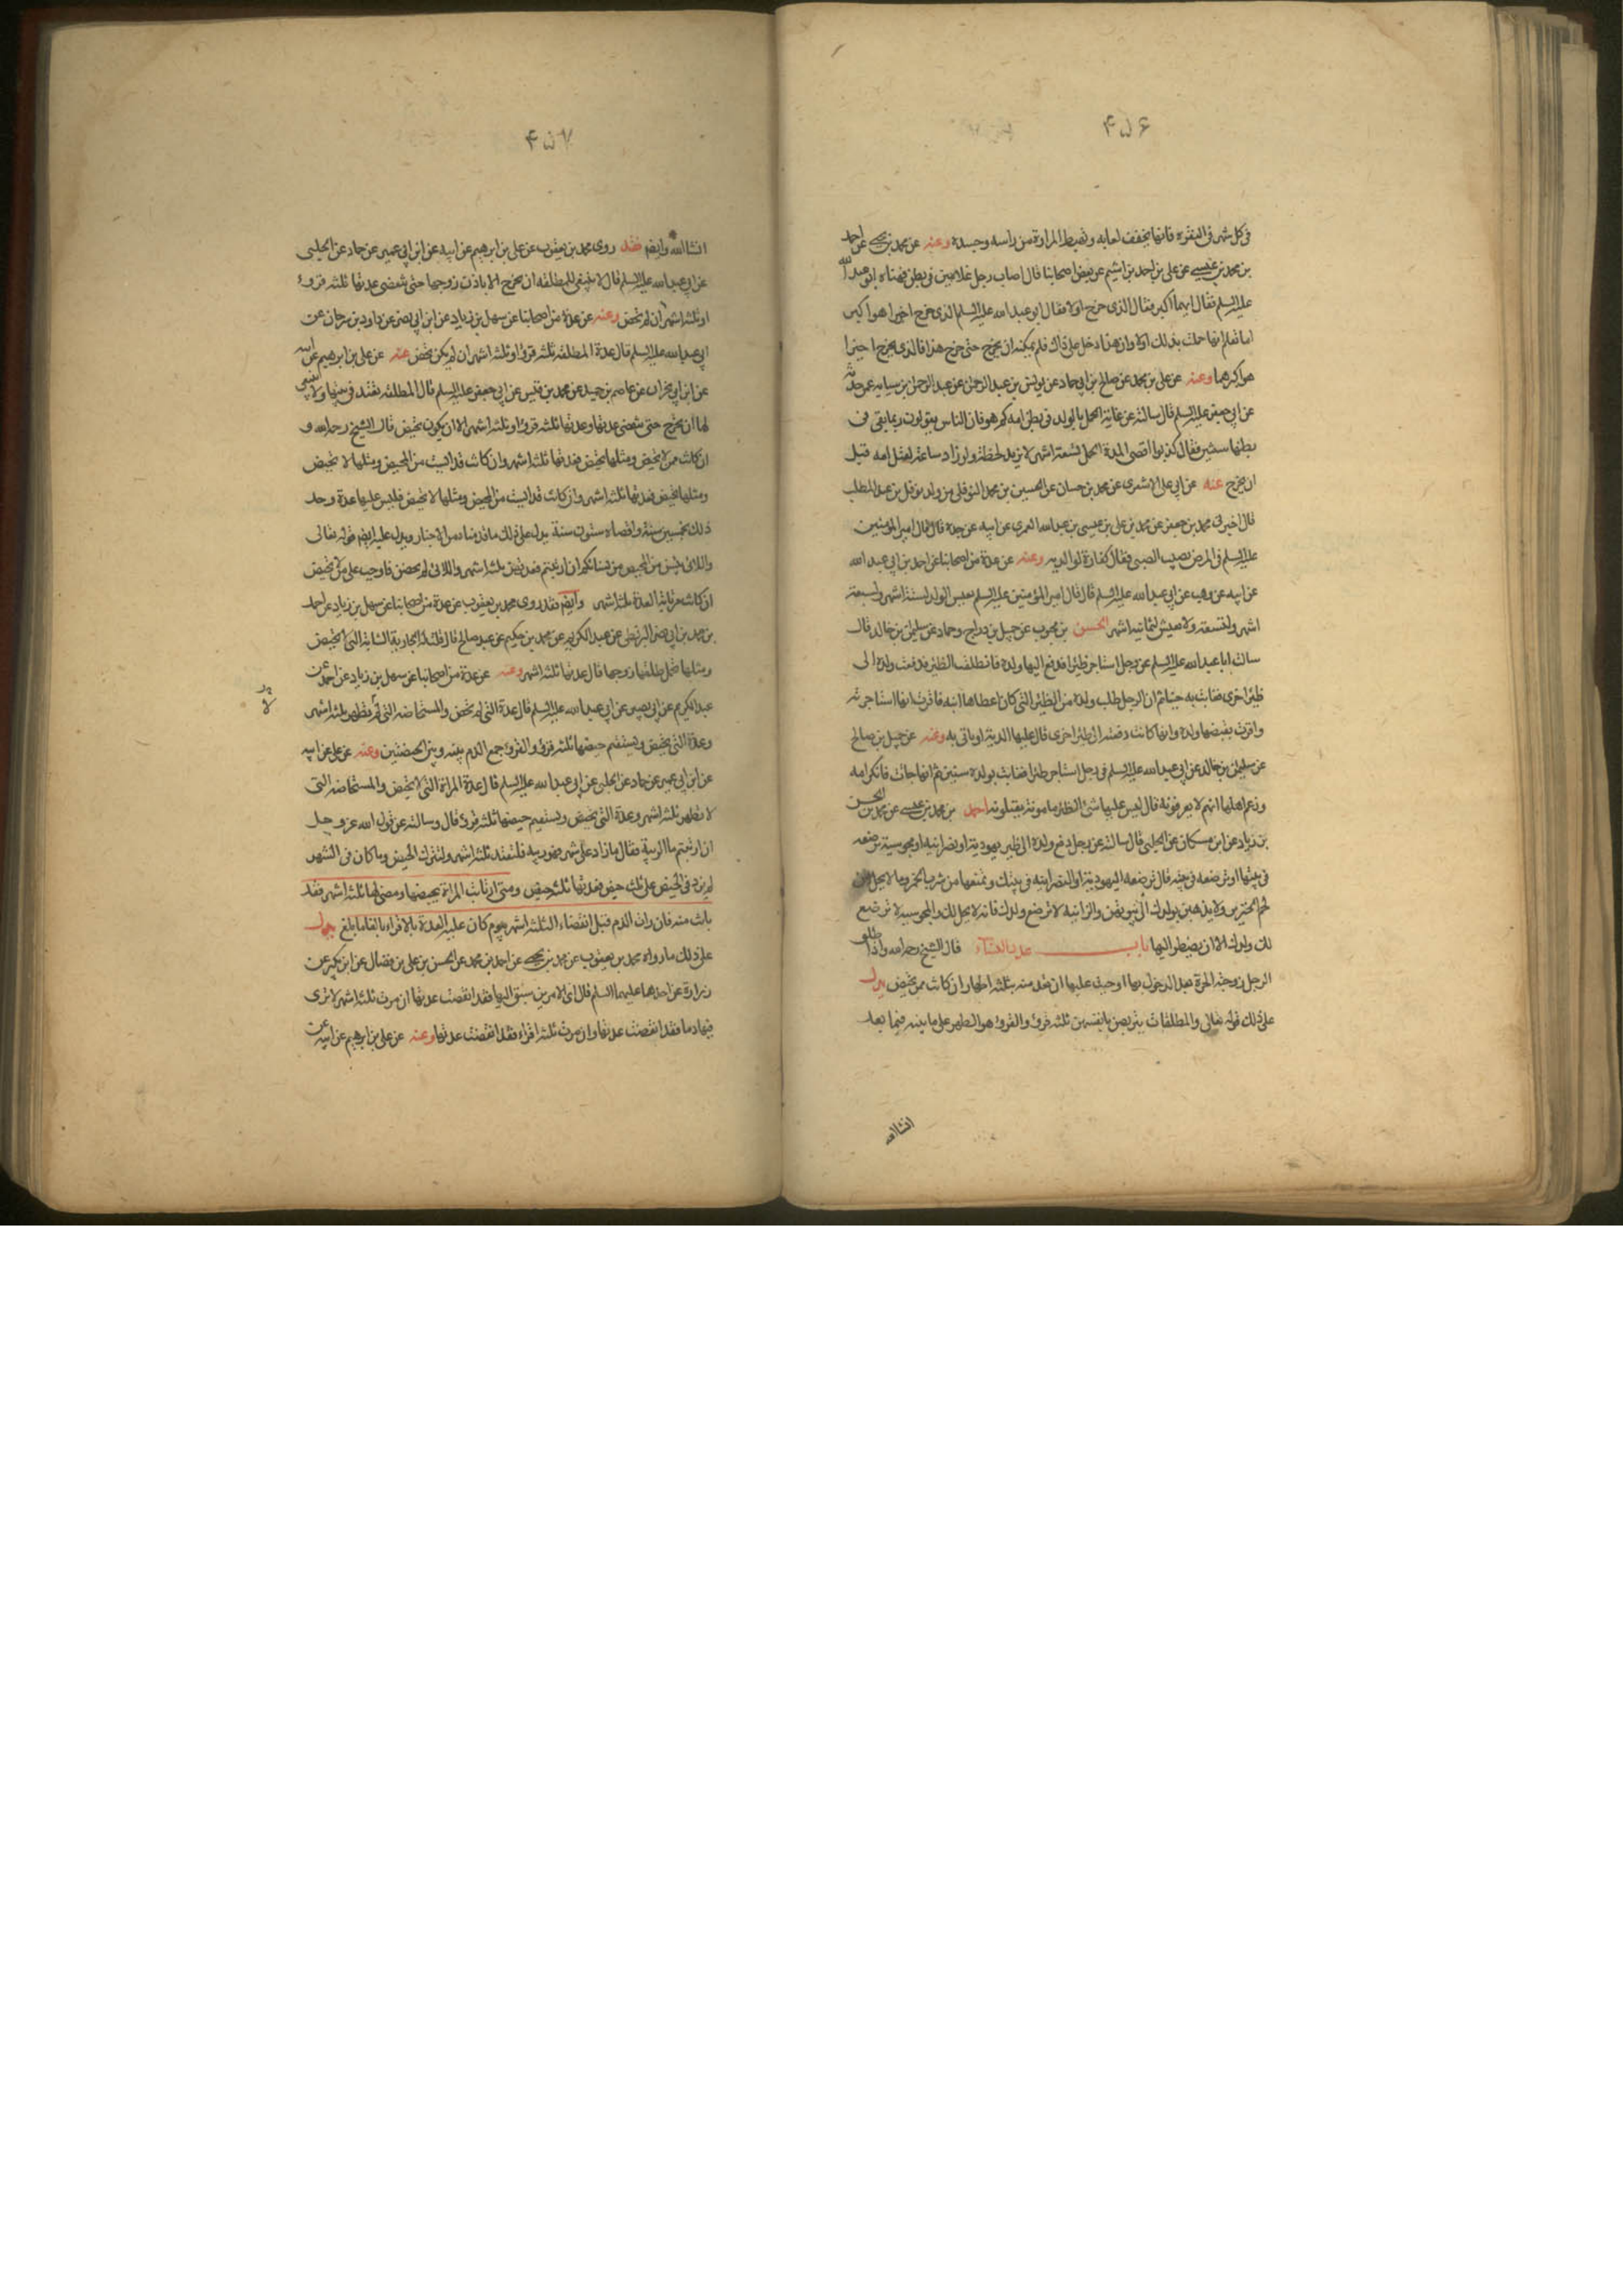 ۴۵۶
فى كل شهر فى النقره فانها تجفف لعابه وتهبط المرارة من راسه وجسده وعنه عن محمد بن يحيى عن احمد
بن محمد بن عيسى عن على بن احمد بن اشيم عن بعض اصحابنا قال اصاب رجل غلامين فى بطن فهناه ابو عبد الله
عليه السلم فقال ايهما اكبر فقال الذى خرج اولا فقال ابو عبد الله عليه السلم الذى خرج اخيرا هو اكبر
اما تعلم انها حملت بذلك اولا وان هذا دخل على ذاك فلم يمكنه ان يخرج حتى خرج هذا فالذى يخرج اخيرا
هو اكبرهما وعنه عن على بن محمد عن صالح بن ابى حماد عن يونس بن عبد الرحمن عن عبد الرحمن بن سيابه عمن حدثه
عن ابى جعفر عليه السلم قال سالته عن غاية الحمل بالولد فى بطن امه كم هو فان الناس يقولون ربما بقى فى
بطنها سنتين فقال كذبوا اقصى المدة الحمل تسعة اشهر لا يزيد لحظة ولو زاد ساعة لقتل امه قبل
ان يخرج عنه عن ابى على الاشعرى عن محمد بن حسان عن الحسين بن محمد النوفلى من ولد نوفل بن عبد المطلب
قال اخبرنى محمد بن جعفر عن محمد بن على بن عيسى بن عبد الله العمرى عن ابيه عن جده قال قال امير المؤمنين
عليه السلم فى المرض يصيب الصبى فقال كفارة لوالديه وعنه عن عدة من اصحابنا عن احمد بن ابى عبد الله
عن ابيه عن وهب عن ابى عبد الله عليه السلم قال قال امير المؤمنين عليه السلم يعيش الولد لستة اشهر ولسبعة
اشهر ولتسعة ولا يعيش لثمانية اشهر الحسن بن محبوب عن جميل بن دراج وحماد عن سليمن بن خالد قال
سالت ابا عبد الله عليه السلم عن رجل استاجر ظئرا فدفع اليها ولده فانطلقت الظئر فدفعت ولده الى
ظئر اخرى فغابت به حينا ثم ان الرجل طلب ولده من الظئر التى كان اعطاها ابنه فاقرت انها استاجرته
واقرت بقبضها ولده وانها كانت دفعته الى ظئر اخرى قال عليها الدية او تاتى به وعنه عن جميل بن صالح
عن سليمن بن خالد عن ابى عبد الله عليه السلم فى رجل استاجر ظئرا فغابت بولده سنين ثم انها جات فانكر امه
وزعم اهلها انهم لا يعرفونه قال ليس عليها شئ الظئر مامونة يقبلونه احمد بن محمد بن عيسى عن محمد بن الحسن
بن زياد عن ابن مسكان عن الحلبى قال سالته عن رجل دفع ولده الى ظئر يهودية او نصرانيه او مجوسية ترضعه
فى بيتها او ترضعه فى بيته قال ترضعه اليهودية او النصرانيه فى بيتك وتمنعها من شرب الخمر وما لا يحل من
لحم الخنزير ولا يذهبن بولدك الى بيوتهن والزانية لا ترضع ولدك فانه لا يحل لك والمجوسيه لا ترضع
لك ولدك الا ان يضطر اليها باب عدد النساء قال الشيخ رحمه الله واذا طلق
الرجل زوجته الحرة بعد الدخول بها وجبت عليها ان تعتد منه بثلثة اطهار ان كانت ممن تحيض يدل
على ذلك قوله تعالى والمطلقات يتربصن بانفسهن ثلثة قروء والقرء هو الطهر على ما نبينه فيما بعد
انشا الله
۴۵۷
انشا الله وايضا فقد روى محمد بن يعقوب عن على بن ابرهيم عن ابيه عن ابن ابى عمير عن حماد عن الحلبى
عن ابى عبد الله عليه السلم قال لا ينبغى للمطلقه ان تخرج الا باذن زوجها حتى تنقضى عدتها ثلثه قروء
او ثلثه اشهر ان لم تحض وعنه عن عدة من اصحابنا عن سهل بن زياد عن ابن ابى نصر عن داود بن سرحان عن
ابى عبد الله عليه السلم قال عدة المطلقه ثلثه قروء او ثلثه اشهر ان لم يكن تحض عنه عن على بن ابرهيم عن ابيه
عن ابن ابى نجران عن عاصم بن حميد عن محمد بن قيس عن ابى جعفر عليه السلم قال المطلقه تعتد فى بيتها ولا ينبغى
لها ان تخرج حتى تنقضى عدتها وعدتها ثلثه قروء او ثلثه اشهر الا ان يكون تحيض قال الشيخ رحمه الله و
ان كانت ممن لا تحيض ومثلها تحيض فعدتها ثلثه اشهر وان كانت قد ايست من المحيض ومثلها لا تحيض
ومثلها تحيض فعدتها ثلثه اشهر وان كانت قد ايست من المحيض ومثلها لا تحيض فليس عليها عدة وحد
ذلك بخمسين سنة واقصاه ستون سنة يدل على ذلك ما قدمناه من الاخبار ويدل عليه ايضا قوله تعالى
واللائى يئسن من المحيض من نسائكم ان ارتبتم فعدتهن ثلثه اشهر واللائى لم يحضن فاوجب على من لا تحيض
ان كانت مرتابة العدة ثلثة اشهر وايضا فقد روى محمد بن يعقوب عن عدة من اصحابنا عن سهل بن زياد عن احمد
بن محمد بن ابى نصر البزنطى عن عبد الكريم عن محمد بن حكيم عن عبد صالح قال قلت له الجارية الشابة التى لا تحيض
ومثلها تحمل طلقها زوجها قال عدتها ثلثه اشهر وعنه عن عدة من اصحابنا عن سهل بن زياد عن احمد عن
عبد الكريم عن ابى بصير عن ابى عبد الله عليه السلم قال عدة التى لم تحض والمستحاضه التى لم تطهر ثلثه اشهر
وعدة التى تحيض ويستقيم حيضها ثلثه قروء والقرؤ جمع الدم بينه وبين الحيضتين وعنه عن على عن ابيه
عن ابن ابى عمير عن حماد عن الحلبى عن ابى عبد الله عليه السلم قال عدة المراة التى لا تحيض والمستحاضه التى
لا تطهر ثلثه اشهر وعدة التى تحيض ويستقيم حيضها ثلثه قروء قال وسالته عن قول الله عز وجل
ان ارتبتم ما الريبة فقال ما زاد على شهر فهو ريبه فلتعتد ثلثه اشهر ولتترك الحيض وما كان فى الشهر
لم يزد فى الحيض على ثلث حيض فعدتها ثلثه حيض ومتى ارتابت المراة بحيضها ومضى لها ثلثه اشهر فقد
بانت منه فان رات الدم قبل انقضاء الثلثه اشهر بيوم كان عليها العدة بالاقراء بالغا ما بلغ يدل
على ذلك ما رواه محمد بن يعقوب عن محمد بن يحيى عن احمد بن محمد عن الحسن بن على بن فضال عن ابن بكير عن
زرارة عن احدهما عليهما السلم قال اى الامرين سبق اليها فقد انقضت عدتها ان مرت ثلثه اشهر لا ترى
فيها دما فقد انقضت عدتها وان مرت ثلثه اقراء فقد انقضت عدتها وعنه عن على بن ابرهيم عن ابيه عن